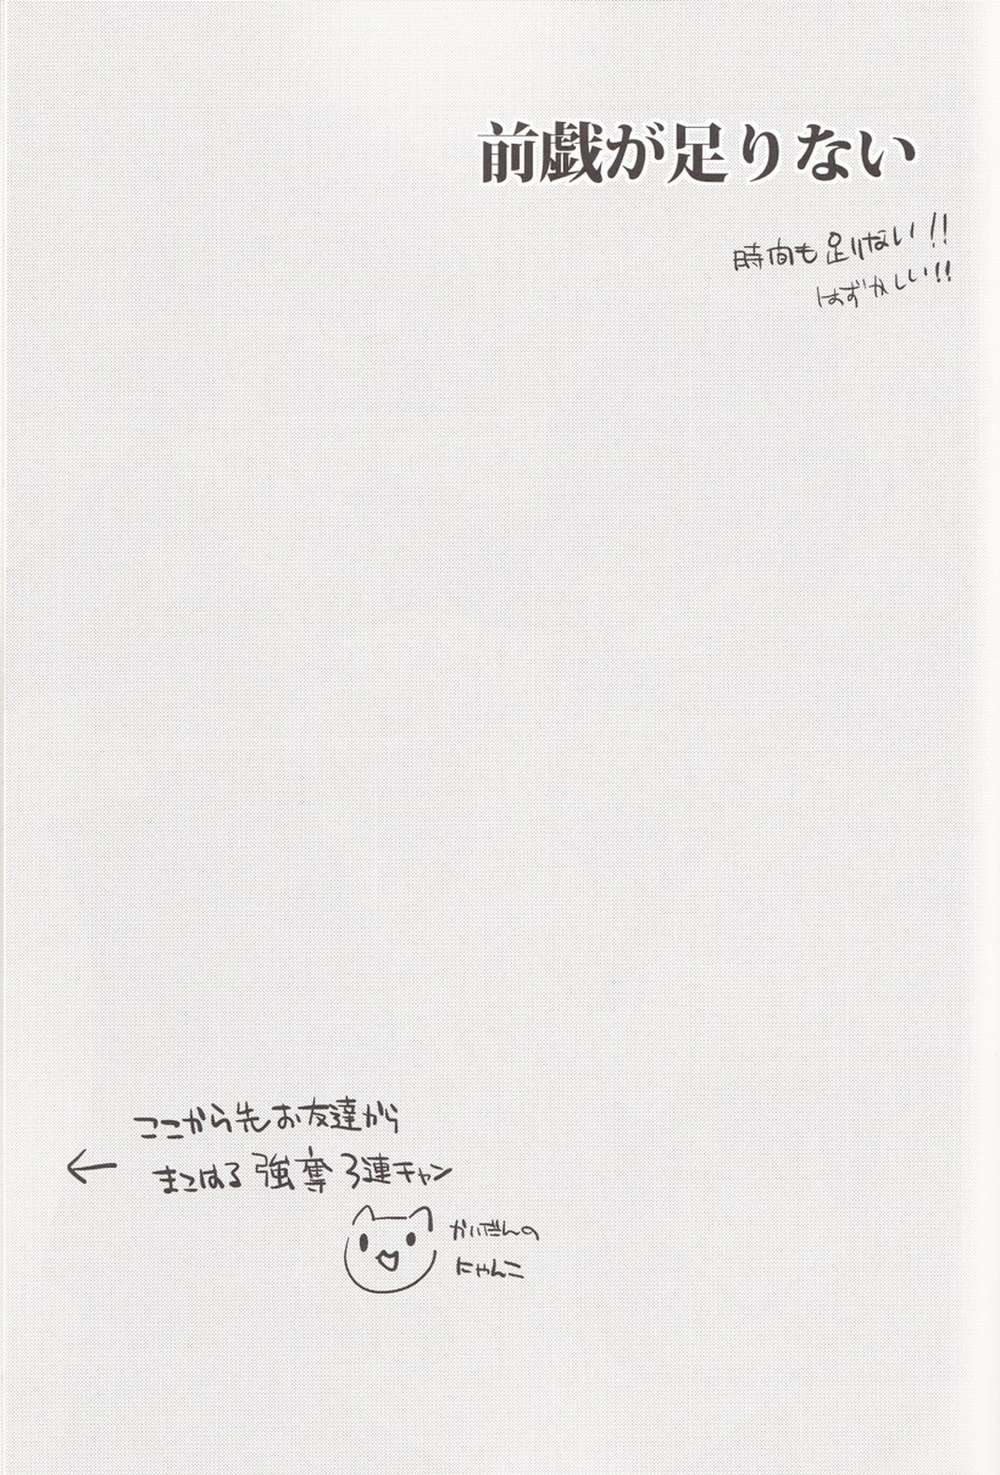 前戯が足りない
時間も足りない!!
はずかしい!!
ここから先お友達から
まこはる強奪3連チャン
かいだんの
にゃんこ